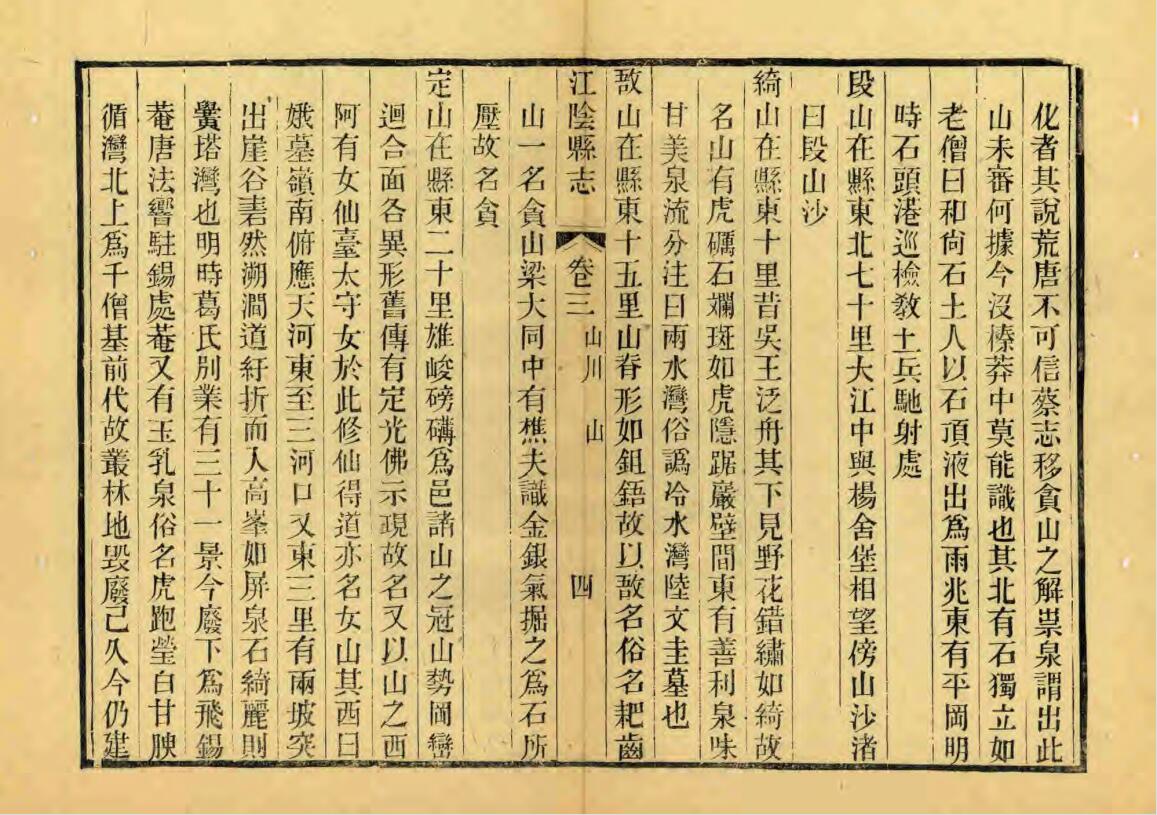 化者其說荒唐不可信蔡志移貪山之解祟泉謂出此
山未審何據今沒榛莽中莫能識也其北有石獨立如
老僧曰和尙石土人以石頂液出爲雨兆東有平岡明
時石頭港巡檢敎士兵馳射處
段山在縣東北七十里大江中與楊舍堡相望傍山沙渚
曰段山沙
綺山在縣東十里昔吳王泛舟其下見野花錯繡如綺故
名山有虎礪石斕斑如虎隱踞巖壁間東有善利泉味
甘美泉流分注曰兩水灣俗譌冷水灣陸文圭墓也
敔山在縣東十五里山脊形如鉏鋙故以敔名俗名耙齒
江陰縣志 卷三 山川 山 四
山一名貪山梁大同中有樵夫識金銀氣掘之爲石所
壓故名貪
定山在縣東二十里雄峻磅礴爲邑諸山之冠山勢岡巒
迴合面各異形舊傳有定光佛示現故名又以山之西
阿有女仙臺太守女於此修仙得道亦名女山其西曰
娥墓嶺南俯應天河東至三河口又東三里有兩坡突
出崖谷砉然溯澗道紆折而入高峯如屏泉石綺麗則
黌塔灣也明時葛氏別業有三十一景今廢下爲飛錫
菴唐法響駐錫處菴又有玉乳泉俗名虎跑瑩白甘腴
循灣北上爲千僧基前代故叢林地毀廢已久今仍建